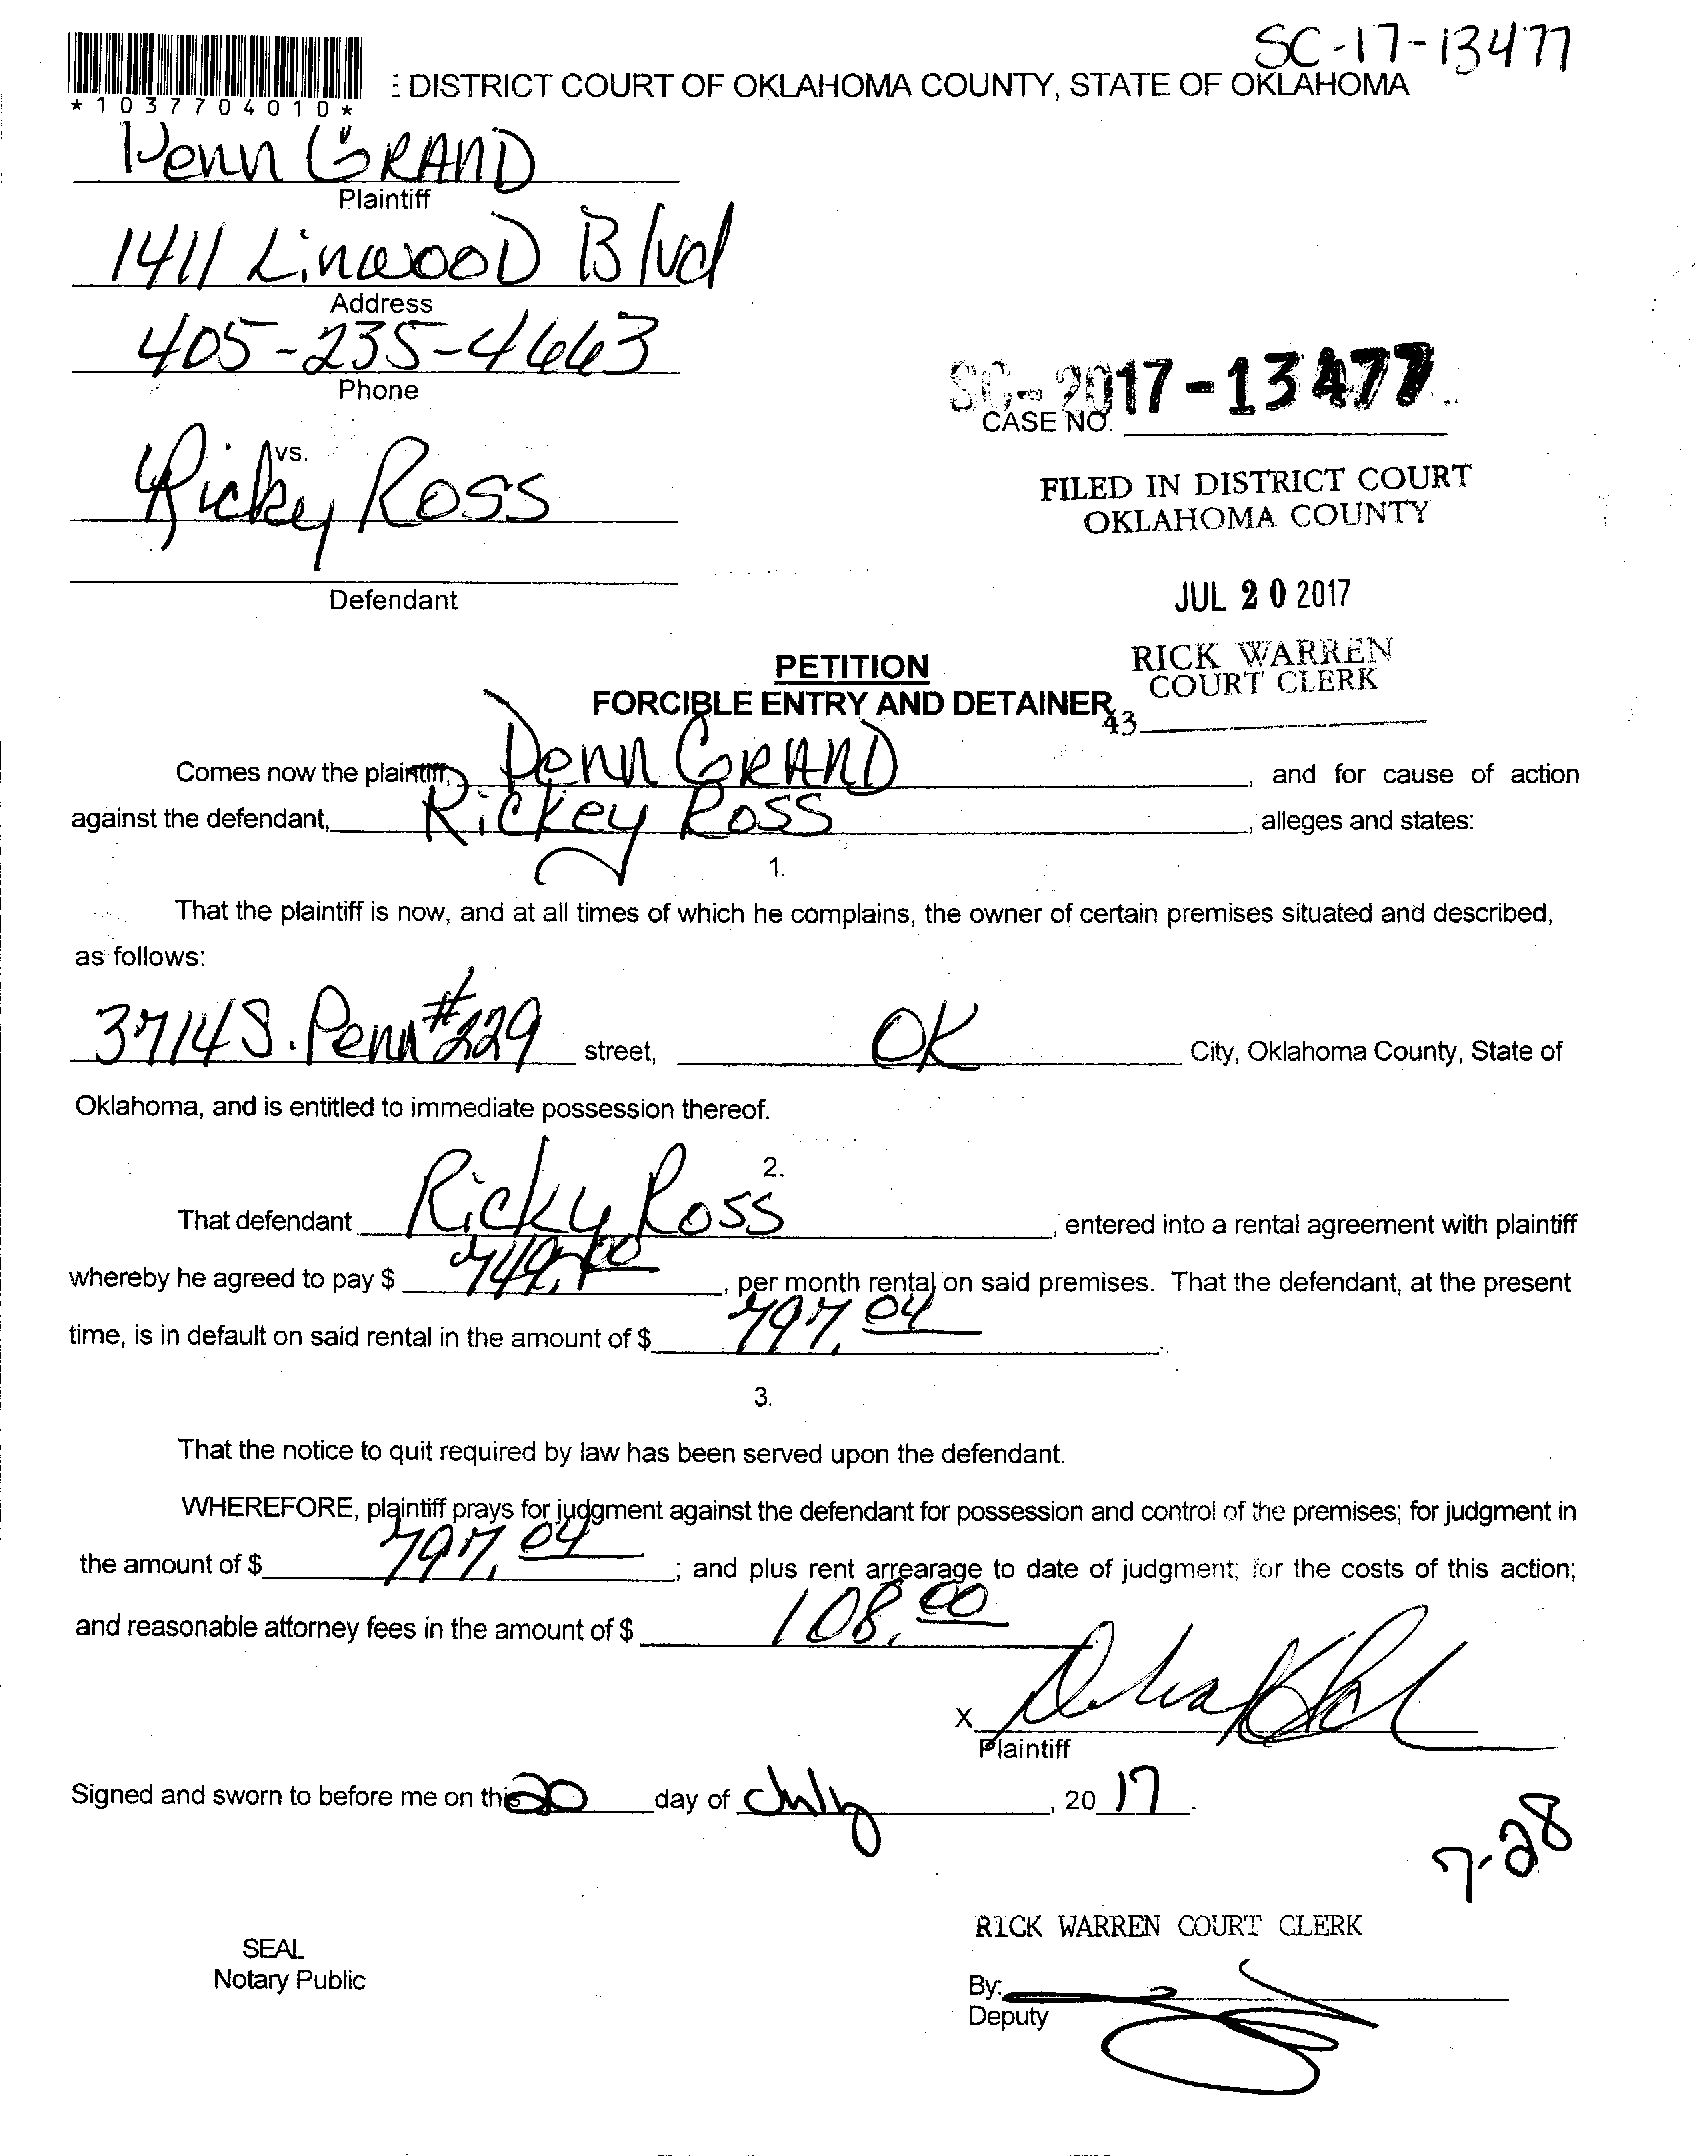 SC-17-13477
DISTRICT COURT OF OKLAHOMA COUNTY, STATE OF OKLAHOMA
*1037704010*
Penn GRAND
Plaintiff
1411 LinwooD Blvd
Address
405-235-4663
Phone
SC-2017-13477
CASE NO.
vs.
Ricky Ross
FILED IN DISTRICT COURT
OKLAHOMA COUNTY
Defendant
JUL 20 2017
PETITION
RICK WARREN
COURT CLERK
FORCIBLE ENTRY AND DETAINER
43
Comes now the plaintiff, Penn GRAND, and for cause of action
against the defendant, Rickey Ross, alleges and states:
1.
That the plaintiff is now, and at all times of which he complains, the owner of certain premises situated and described,
as follows:
3714 S. Penn #229 street, OK City, Oklahoma County, State of
Oklahoma, and is entitled to immediate possession thereof.
2.
That defendant Ricky Ross, entered into a rental agreement with plaintiff
whereby he agreed to pay $ , per month rental on said premises. That the defendant, at the present
time, is in default on said rental in the amount of $ 797.04.
3.
That the notice to quit required by law has been served upon the defendant.
WHEREFORE, plaintiff prays for judgment against the defendant for possession and control of the premises; for judgment in
the amount of $ 797.04; and plus rent arrearage to date of judgment; for the costs of this action;
and reasonable attorney fees in the amount of $ 108.00
X
Plaintiff
Signed and sworn to before me on this 20 day of July, 20 17.
7-28
RICK WARREN COURT CLERK
SEAL
Notary Public
By:
Deputy